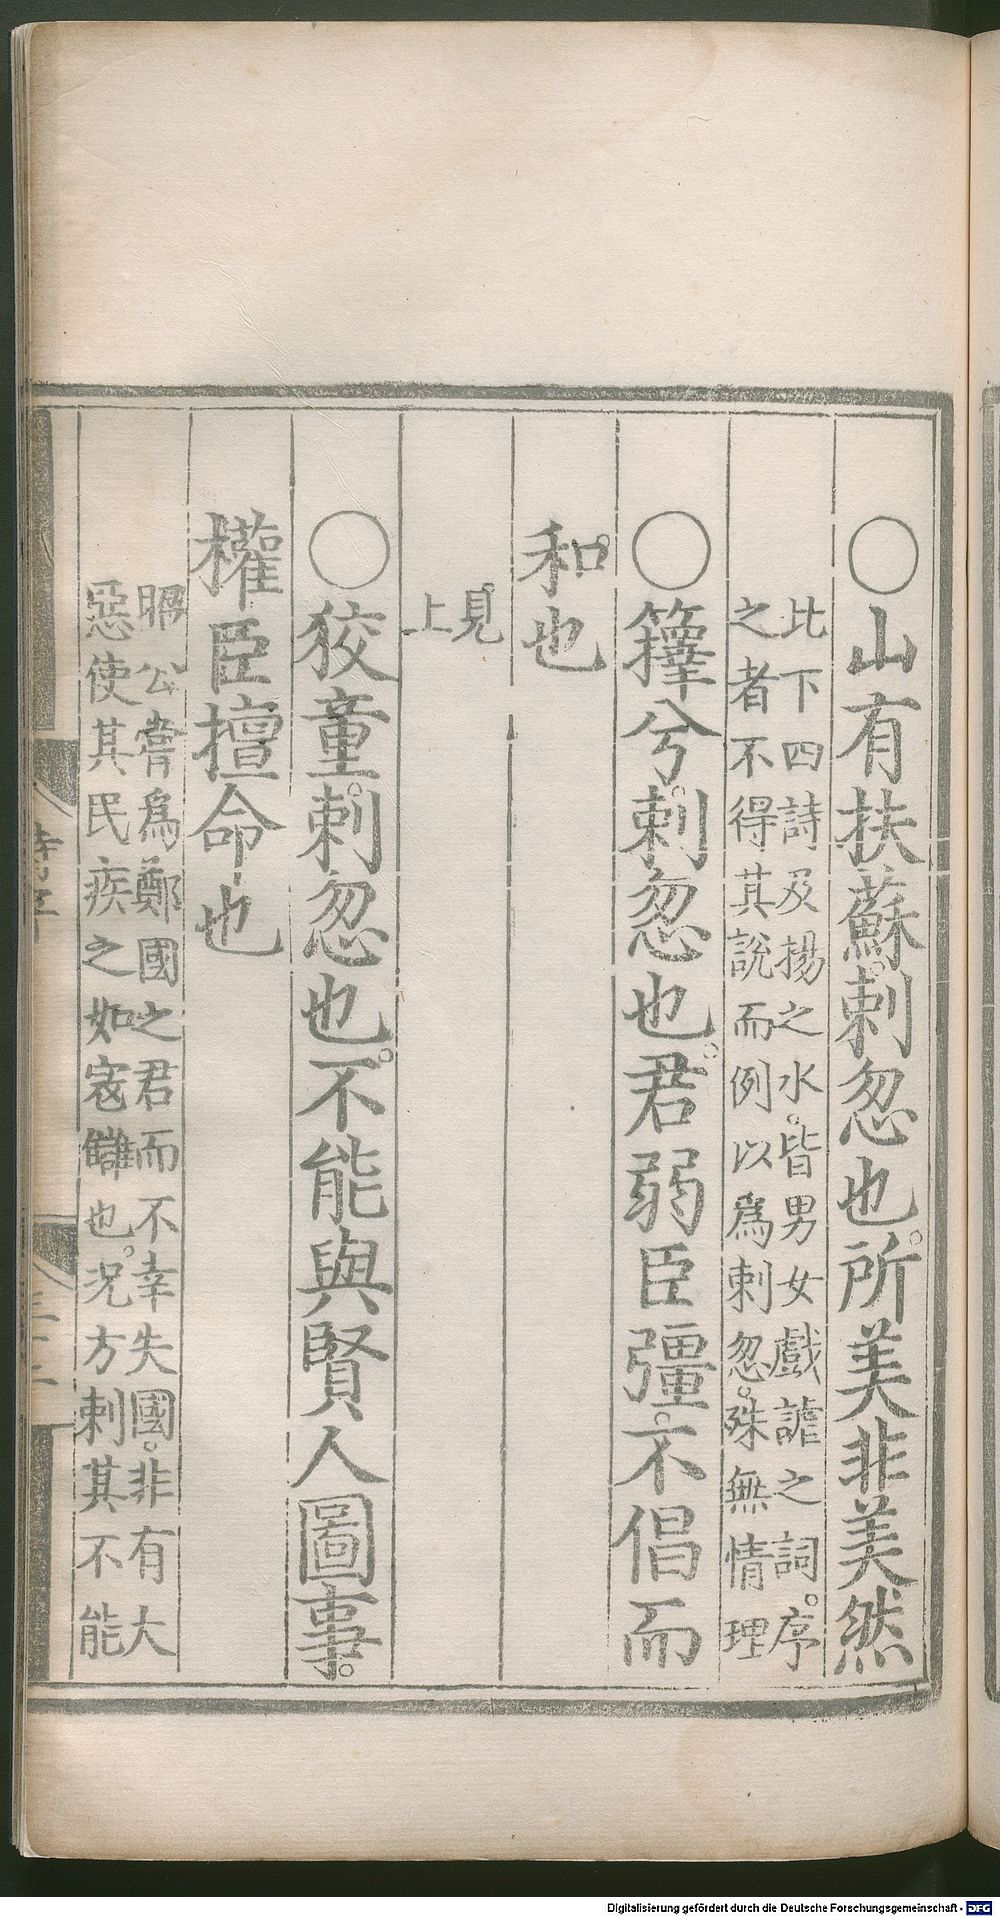 ○山有扶蘇。刺忽也。所美非美然
比下四詩及揚之水。皆男女戲謔之詞。序
之者不得其說而例以爲刺忽。殊無情理
○籜兮。刺忽也。君弱臣彊。不倡而
和。也
見。
上
○狡童。刺忽也。不能與賢人圖事。
權臣擅命也
昭公嘗爲鄭國之君而不幸失國。非有大
惡使其民疾之如寇讎也。况方刺其不能
Digitalisierung gefördert durch die Deutsche Forschungsgemeinschaft - DFG